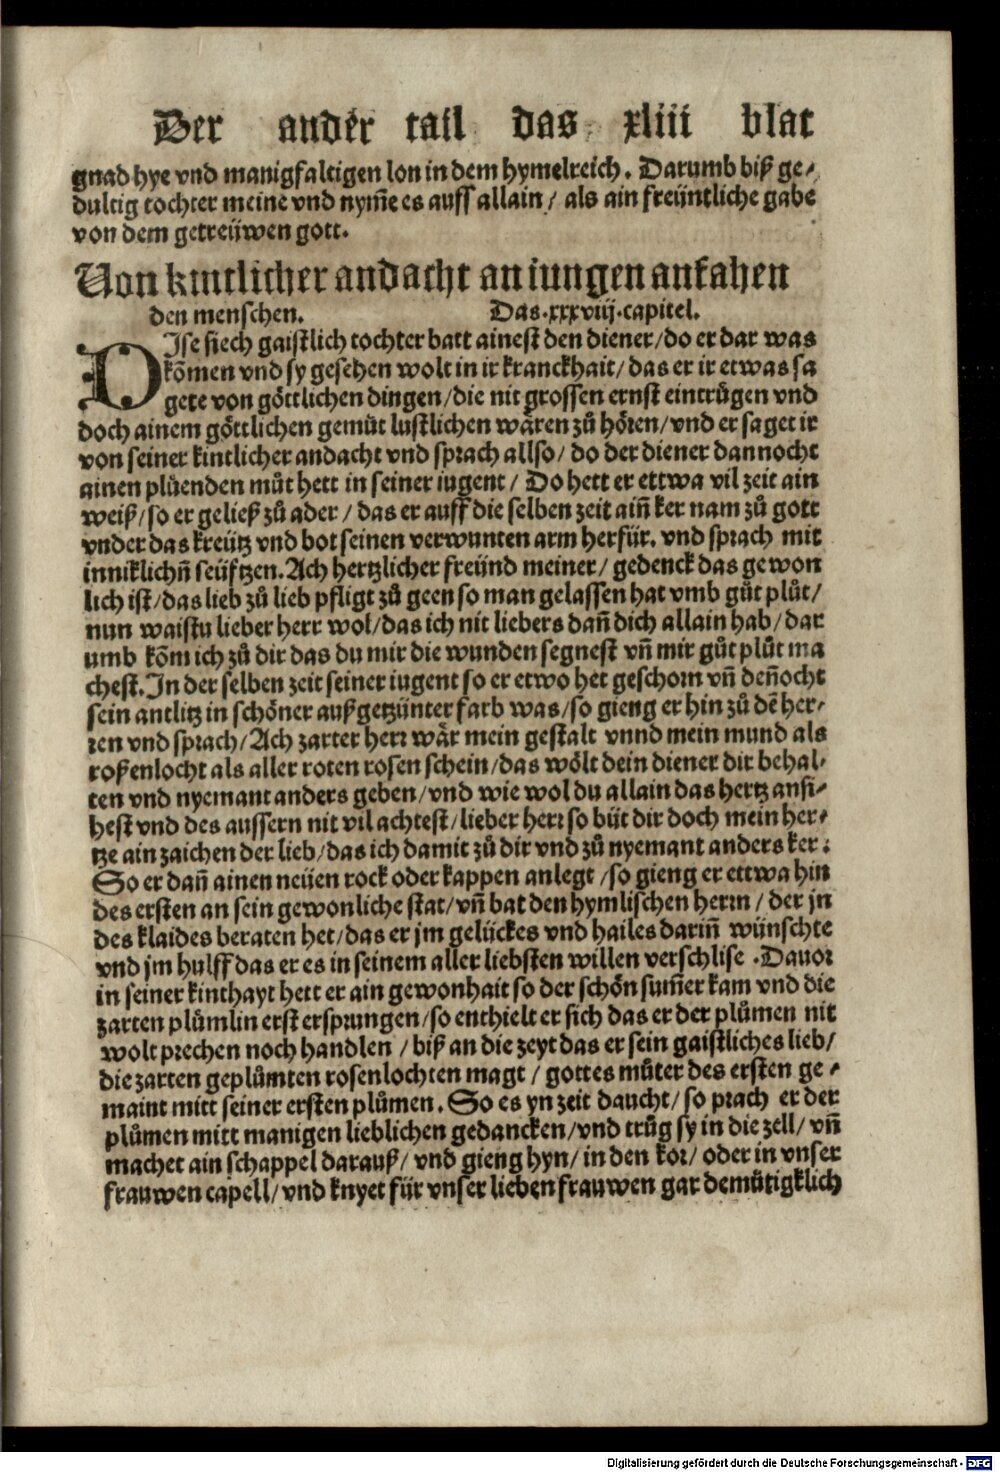 Der ander tail das xliii blat
gnad hye vnd manigfaltigen lon in dem hymelreich. Darumb biß ge⸗
dultig tochter meine vnd nym̃e es auff allain / als ain freüntliche gabe
von dem getreüwen gott.
Von kintlicher andacht an iungen anfahen
den menschen. Das .xxxviij. capitel.
DIse siech gaistlich tochter batt ainest den diener/do er dar was
kõmen vnd sy gesehen wolt in ir kranckhait/das er ir etwas sa
gete von göttlichen dingen/die nit grossen ernst eintrůgen vnd
doch ainem göttlichen gemüt lustlichen wären zů hören/vnd er saget ir
von seiner kintlicher andacht vnd sprach allso/ do der diener dannocht
ainen plüenden můt hett in seiner iugent/ Do hett er ettwa vil zeit ain
weiß/so er geließ zů ader/das er auff die selben zeit ain̄ ker nam zů gott
vnder das kreütz vnd bot seinen verwunten arm herfür. vnd sprach mit
inniklichn̄ seüftzen. Ach hertzlicher freünd meiner/ gedenck das gewon
lich ist/das lieb zů lieb pfligt zů geen so man gelassen hat vmb gůt plůt/
nun waistu lieber herr wol/das ich nit liebers dan̄ dich allain hab/dar
umb kõm ich zů dir das du mir die wunden segnest vn̄ mir gůt plůt ma
chest. In der selben zeit seiner iugent so er etwo het geschorn vn̄ den̄ocht
sein antlitz in schöner außgetzünter farb was/so gieng er hin zů dē her⸗
ren vnd sprach/Ach zarter herr wär mein gestalt vnnd mein mund als
roßenlocht als aller roten rosen schein/das wölt dein diener dir behal⸗
ten vnd nyemant anders geben/vnd wie wol du allain das hertz ansi⸗
hest vnd des aussern nit vil achtest/lieber herr so büt dir doch mein her⸗
tze ain zaichen der lieb/das ich damit zů dir vnd zů nyemant anders ker:
So er dan̄ ainen neüen rock oder kappen anlegt/so gieng er ettwa hin
des ersten an sein gewonliche stat/vn̄ bat den hymlischen herrn/ der jn
des klaides beraten het/das er jm gelückes vnd hailes darin̄ wünschte
vnd jm hulff das er es in seinem aller liebsten willen verschlise. Dauor
in seiner kinthayt hett er ain gewonhait so der schön sum̄er kam vnd die
zarten plůmlin erst ersprungen/so enthielt er sich das er der plůmen nit
wolt prechen noch handlen / biß an die zeyt das er sein gaistliches lieb/
die zarten geplůmten rosenlochten magt / gottes můter des ersten ge⸗
maint mitt seiner ersten plůmen. So es yn zeit daucht/ so prach er der
plůmen mitt manigen lieblichen gedancken/vnd trůg sy in die zell/ vn̄
machet ain schappel darauß/ vnd gieng hyn/ in den kor/ oder in vnser
frauwen capell/ vnd knyet für vnser lieben frauwen gar demütigklich
Digitalisierung gefördert durch die Deutsche Forschungsgemeinschaft - DFG